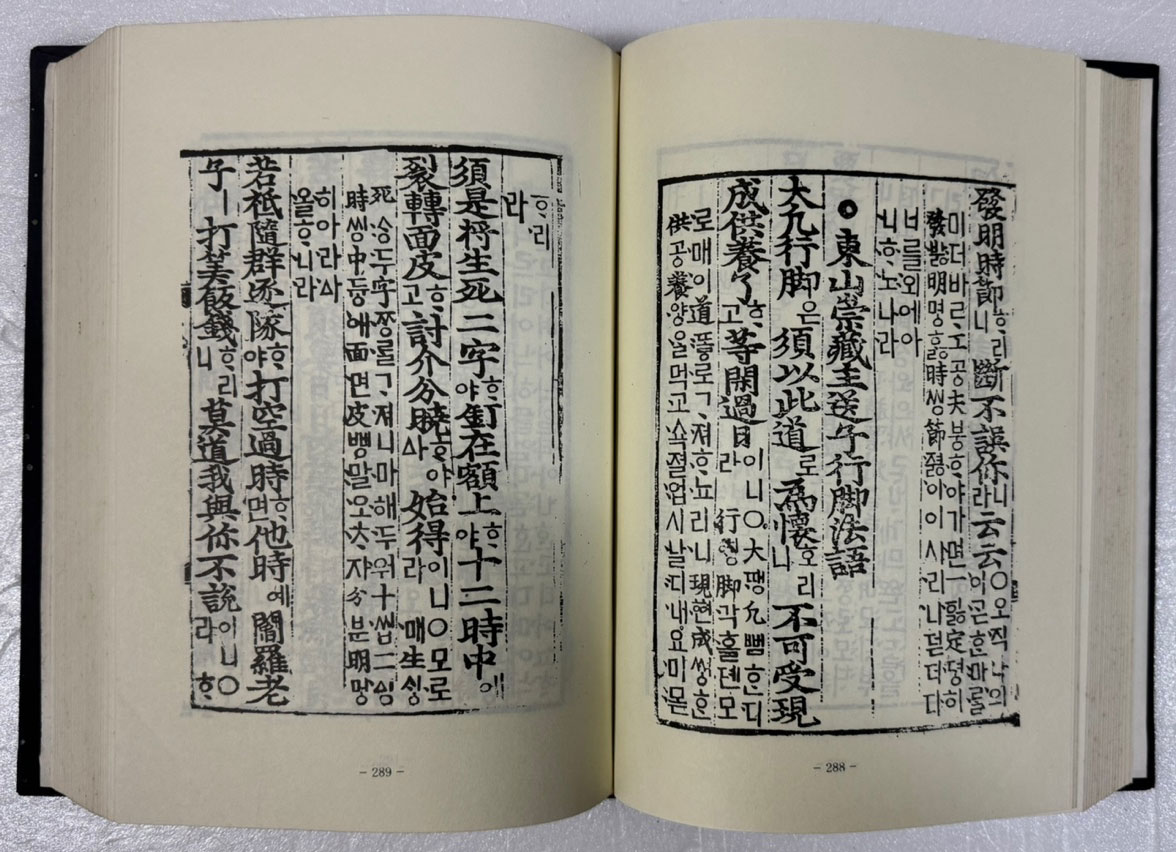 發明時節ᄒᆞ리니 斷不誤你라니 云云 ○오직 나의
이 곧 ᄒᆞᆫ 마ᄅᆞᆯ
미더 바ᄅᆞ 工공夫붕ᄒᆞ야 가면 一ᅙᅵᇙ定뎡히
發벓明명ᄒᆞᇙ時씽節졇이 이시리니
너를 외에 아
니ᄒᆞ노니라
●東山崇藏主送子行脚法語
大凡行脚은 須以此道로 爲懷호리니 不可受現
成供養了ᄒᆞ고 等閑過日이니라 ○大땡凡뻠ᄒᆞᆫ디
行ᅘᆡᇰ脚각홀뎬 모
로매 이 道또ᇢ로 ᄀᆞ져 ᄒᆞ뇨리니 現현成쎵ᄒᆞᆫ
供공養양ᄋᆞᆯ 먹고 쇽졀업시 날 디내요미 몯
- 288 -
ᄒᆞ리
라
須是將生死二字ᄒᆞ야 釘在額上ᄒᆞ야 十二時中에
裂轉面皮ᄒᆞ고 討介分曉ᄒᆞ야ᅀᅡ 始得이니라 ○모로
매 生ᄉᆡᇰ
死ᄉᆞᆼ두字ᄍᆞᆼᄅᆞᆯ ᄀᆞ져 니마해 두워 十씹二ᅀᅵᆼ
時씽中듕에 面면皮삥 ᄆᆞᆯ오 ᄎᆞ자 分분明명
히 아라ᅀᅡ
올ᄒᆞ니라
若秪隨群逐隊ᄒᆞ야 打空過時ᄒᆞ면 他時예 閻羅老
子ㅣ 打筭飯錢ᄒᆞ리니 莫道我與你不說이니라 ○ᄒᆞ
- 289 -